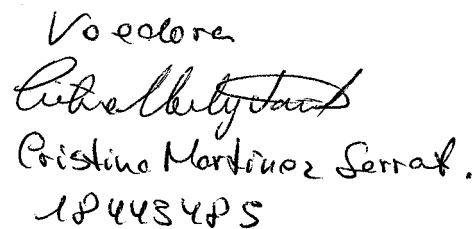 Veedora
Cristina Martinez Serrat.
18443485